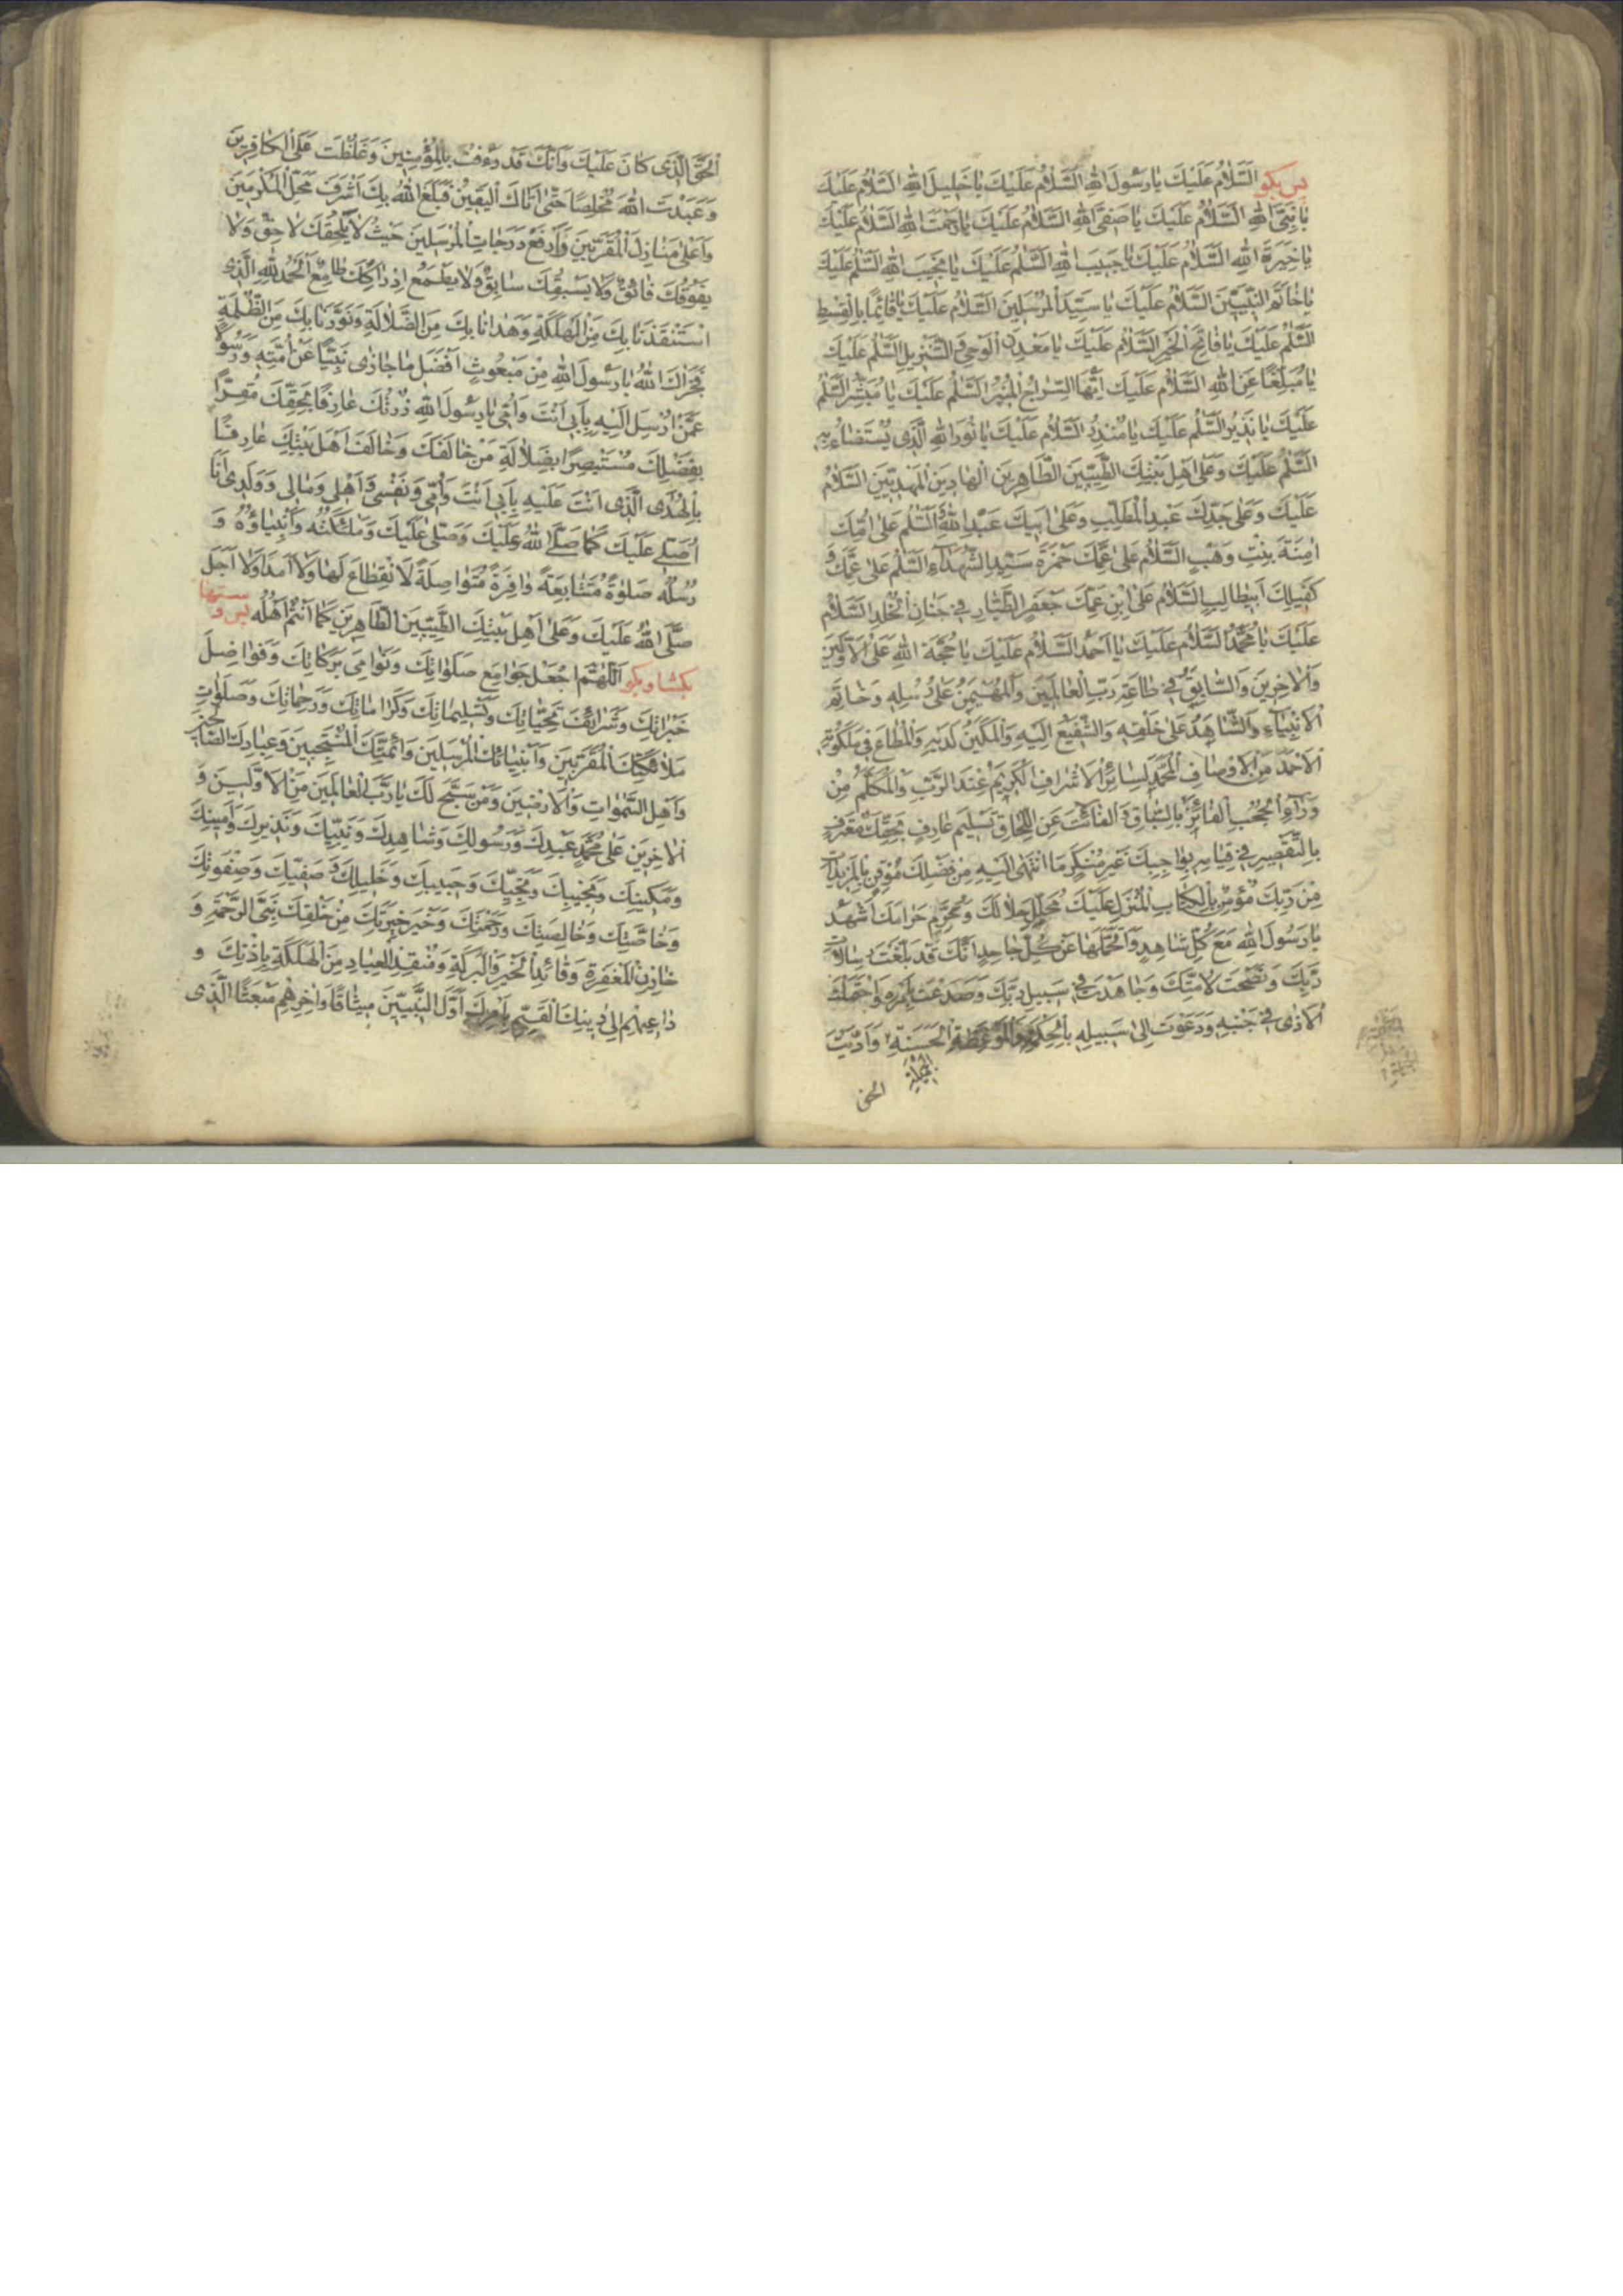 پس بگو السَّلامُ عَلَيْكَ يا رَسُولَ اللهِ السَّلامُ عَلَيْكَ يا خَليلَ اللهِ السَّلامُ عَلَيْكَ
يا نَبِيَّ اللهِ السَّلامُ عَلَيْكَ يا صَفِيَّ اللهِ السَّلامُ عَلَيْكَ يا رَحْمَتَ اللهِ السَّلامُ عَلَيْكَ
يا خِيَرَةَ اللهِ السَّلامُ عَلَيْكَ يا حَبيبَ اللهِ السَّلمُ عَلَيْكَ يا نَجيبَ اللهِ السَّلمُ عَلَيْكَ
يا خاتَمَ النَّبِيّينَ السَّلامُ عَلَيْكَ يا سَيِّدَ الْمُرْسَلينَ السَّلامُ عَلَيْكَ يا قائِمًا بِالْقِسْطِ
السَّلمُ عَلَيْكَ يا فاتِحَ الْخَيْرِ السَّلامُ عَلَيْكَ يا مَعْدِنَ الْوَحْيِ وَ التَّنْزيلِ السَّلمُ عَلَيْكَ
يا مُبَلِّغًا عَنِ اللهِ السَّلامُ عَلَيْكَ اَيُّهَا السِّراجُ الْمُنيرُ السَّلمُ عَلَيْكَ يا مُبَشِّرُ السَّلمُ
عَلَيْكَ يا نَذيرُ السَّلمُ عَلَيْكَ يا مُنْذِرُ السَّلامُ عَلَيْكَ يا نُورَ اللهِ الَّذى يُسْتَضاءُ بِهِ
السَّلمُ عَلَيْكَ وَ عَلى اَهْلِ بَيْتِكَ الطَّيِّبينَ الطّاهِرينَ الْهادينَ الْمَهْدِيّينَ السَّلامُ
عَلَيْكَ وَ عَلى جَدِّكَ عَبْدِ الْمُطَّلِبِ وَ عَلى اَبيكَ عَبْدِ اللهِ السَّلمُ عَلى اُمِّكَ
امِنَةَ بِنْتِ وَهَبٍ السَّلامُ عَلى عَمِّكَ حَمْزَةَ سَيِّدِ الشُّهَداءِ السَّلمُ عَلى عَمِّكَ وَ
كَفيلِكَ اَبيطالِبٍ السَّلامُ عَلَى ابْنِ عَمِّكَ جَعْفَرٍ الطَّيّارِ فى جِنانِ الْخُلْدِ السَّلامُ
عَلَيْكَ يا مُحَمَّدُ السَّلامُ عَلَيْكَ يا اَحْمَدُ السَّلامُ عَلَيْكَ يا حُجَّةَ اللهِ عَلَى الْاَوَّلينَ
وَ الْاخِرينَ وَ السّابِقُ فى طاعَةِ رَبِّ الْعالَمينَ وَ الْمُهَيْمِنُ عَلى رُسُلِهِ وَ خاتَمَ
الْاَنْبِياءِ وَ الشّاهِدُ عَلى خَلْقِهِ وَ الشَّفيعُ اِلَيْهِ وَ الْمَكينُ لَدَيْهِ وَ الْمُطاعُ فى مَلَكُوتِهِ
الْاَحْمَدُ مِنَ الْاَوْصافِ الْمُحَمَّدُ لِسائِرِ الْاَشْرافِ الْكَريمُ عِنْدَ الرَّبِّ وَ الْمُكَلَّمُ مِنْ
وَراءِ الْحُجُبِ الْفائِزُ بِالسِّباقِ وَ الْفائِتُ عَنِ اللِّحاقِ تَسْليمَ عارِفٍ بِحَقِّكَ مُعْتَرِفٍ
بِالتَّقْصيرِ فى قِيامِهِ بِواجِبِكَ غَيْرِ مُنْكِرٍ مَا انْتَهى اِلَيْهِ مِنْ فَضْلِكَ مُوقِنٍ بِالْمَزيداتِ
مِنْ رَبِّكَ مُؤْمِنٍ بِالْكِتابِ الْمُنْزَلِ عَلَيْكَ مُحَلِّلٍ حَلالَكَ وَ مُحَرِّمٍ حَرامَكَ اَشْهَدُ
يا رَسُولَ اللهِ مَعَ كُلِّ شاهِدٍ وَ اَتَحَمَّلُها عَنْ كُلِّ جاحِدٍ اَنَّكَ قَدْ بَلَّغْتَ رِسالاتِ
رَبِّكَ وَ نَصَحْتَ لِاُمَّتِكَ وَ جاهَدْتَ فى سَبيلِ رَبِّكَ وَ صَدَعْتَ بِاَمْرِهِ وَ احْتَمَلْتَ
الْاَذى فى جَنْبِهِ وَ دَعَوْتَ اِلى سَبيلِهِ بِالْحِكْمَةِ وَ الْمَوْعِظَةِ الْحَسَنَةِ وَ اَدَّيْتَ
الحق
الْحَقَّ الَّذى كانَ عَلَيْكَ وَ اَنَّكَ قَدْ رَؤُفْتَ بِالْمُؤْمِنينَ وَ غَلُظْتَ عَلَى الْكافِرينَ
وَ عَبَدْتَ اللهَ مُخْلِصًا حَتّى اَتاكَ الْيَقينُ فَبَلَغَ اللهُ بِكَ اَشْرَفَ مَحَلِّ الْمُكَرَّمينَ
وَ اَعْلى مَنازِلِ الْمُقَرَّبينَ وَ اَرْفَعَ دَرَجاتِ الْمُرْسَلينَ حَيْثُ لا يَلْحَقُكَ لاحِقٌ وَ لا
يَفُوقُكَ فائِقٌ وَ لا يَسْبِقُكَ سابِقٌ وَ لا يَطْمَعُ اِدْراكَكَ طامِعٌ اَلْحَمْدُ لِلّهِ الَّذى
اسْتَنْقَذَنا بِكَ مِنَ الْهَلَكَةِ وَ هَدانا بِكَ مِنَ الضَّلالَةِ وَ نَوَّرَنا بِكَ مِنَ الظُّلْمَةِ
فَجَزاكَ اللهُ يا رَسُولَ اللهِ مِنْ مَبْعُوثٍ اَفْضَلَ ما جازى نَبِيًّا عَنْ اُمَّتِهِ وَ رَسُولًا
عَمَّنْ اُرْسِلَ اِلَيْهِ بِاَبى اَنْتَ وَ اُمّى يا رَسُولَ اللهِ زُرْتُكَ عارِفًا بِحَقِّكَ مُقِرًّا
بِفَضْلِكَ مُسْتَبْصِرًا بِضَلالَةِ مَنْ خالَفَكَ وَ خالَفَ اَهْلَ بَيْتِكَ عارِفًا
بِالْهُدَى الَّذى اَنْتَ عَلَيْهِ بِاَبى اَنْتَ وَ اُمّى وَ نَفْسى وَ اَهْلى وَ مالى وَ وَلَدى اَنَا
اُصَلّى عَلَيْكَ كَما صَلَّى اللهُ عَلَيْكَ وَ صَلّى عَلَيْكَ وَ مَلئِكَتُهُ وَ اَنْبِياؤُهُ وَ
رُسُلُهُ صَلوةً مُتَتابِعَةً وافِرَةً مُتَواصِلَةً لَا انْقِطاعَ لَها وَ لا اَمَدَ وَ لا اَجَلَ
صَلَّى اللهُ عَلَيْكَ وَ عَلى اَهْلِ بَيْتِكَ الطَّيِّبينَ الطّاهِرينَ كَما اَنْتُمْ اَهْلُهُ پس دستها
بكشا و بگو اَللّهُمَّ اجْعَلْ جَوامِعَ صَلَواتِكَ وَ نَوامِىَ بَرَكاتِكَ وَ فَواضِلَ
خَيْراتِكَ وَ شَرائِفَ تَحِيّاتِكَ وَ تَسْليماتِكَ وَ كَراماتِكَ وَ رَحَماتِكَ وَ صَلَواتِ
مَلائِكَتِكَ الْمُقَرَّبينَ وَ اَنْبِيائِكَ الْمُرْسَلينَ وَ اَئِمَّتِكَ الْمُنْتَجَبينَ وَ عِبادِكَ الصّالِحينَ
وَ اَهْلِ السَّمواتِ وَ الْاَرَضينَ وَ مَنْ سَبَّحَ لَكَ يا رَبَّ الْعالَمينَ مِنَ الْاَوَّلينَ وَ
الْاخِرينَ عَلى مُحَمَّدٍ عَبْدِكَ وَ رَسُولِكَ وَ شاهِدِكَ وَ نَبِيِّكَ وَ نَذيرِكَ وَ اَمينِكَ
وَ مَكينِكَ وَ نَجيبِكَ وَ نَجِيِّكَ وَ حَبيبِكَ وَ خَليلِكَ وَ صَفِيِّكَ وَ صِفْوَتِكَ
وَ خاصَّتِكَ وَ خالِصَتِكَ وَ رَحْمَتِكَ وَ خَيْرِ خِيَرَتِكَ مِنْ خَلْقِكَ نَبِىِّ الرَّحْمَةِ وَ
خازِنِ الْمَغْفِرَةِ وَ قائِدِ الْخَيْرِ وَ الْبَرَكَةِ وَ مُنْقِذِ الْعِبادِ مِنَ الْهَلَكَةِ بِاِذْنِكَ وَ
داعيهِمْ اِلى دينِكَ الْقَيِّمِ بِاَمْرِكَ اَوَّلِ النَّبِيّينَ ميثاقًا وَ اخِرِهِمْ مَبْعَثًا الَّذى